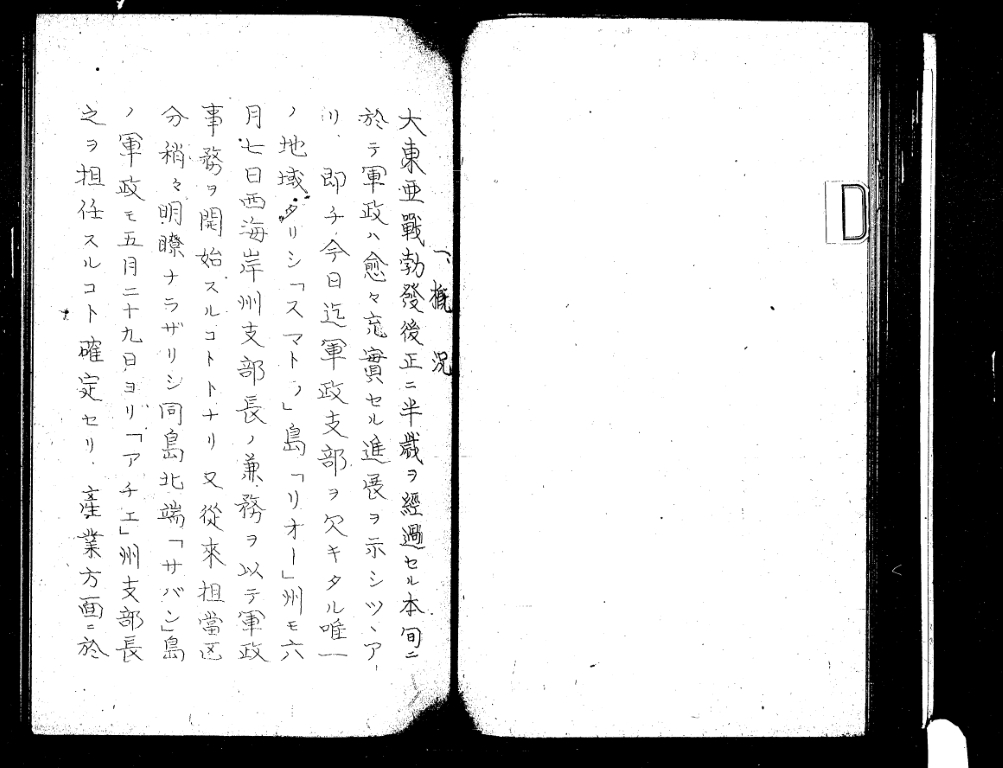 一、概況
大東亜戰勃發後正ニ半歳ヲ經過セル本旬ニ
於テ軍政ハ愈々充實セル進展ヲ示シツヽア
リ、即チ今日迄軍政支部ヲ欠キタル唯一
ノ地域タリシ「スマトラ」島「リオー」州モ六
月七日西海岸州支部長ノ兼務ヲ以テ軍政
事務ヲ開始スルコトトナリ又從來担當区
分稍々明瞭ナラザリシ同島北端「サバン」島
ノ軍政モ五月二十九日ヨリ「アチエ」州支部長
之ヲ担任スルコト確定セリ、産業方面ニ於